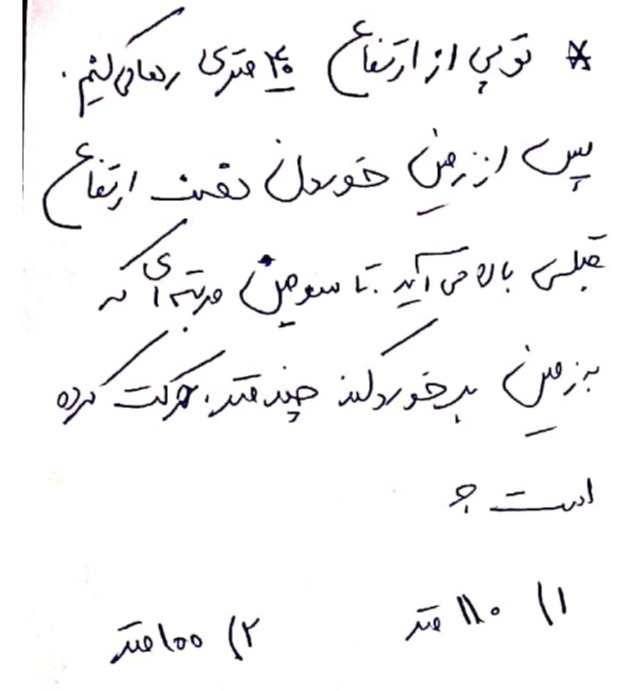 * توپی از ارتفاع ۴۰ متری رها می‌کنیم.
پس از زمین خوردن نصف ارتفاع
قبلش بالا می‌آید. تا سومین مرتبه‌ای که
به زمین برخورد کند چند متر حرکت کرده
است؟
۱) ۱۱۰ متر ۲) ۱۰۰ متر